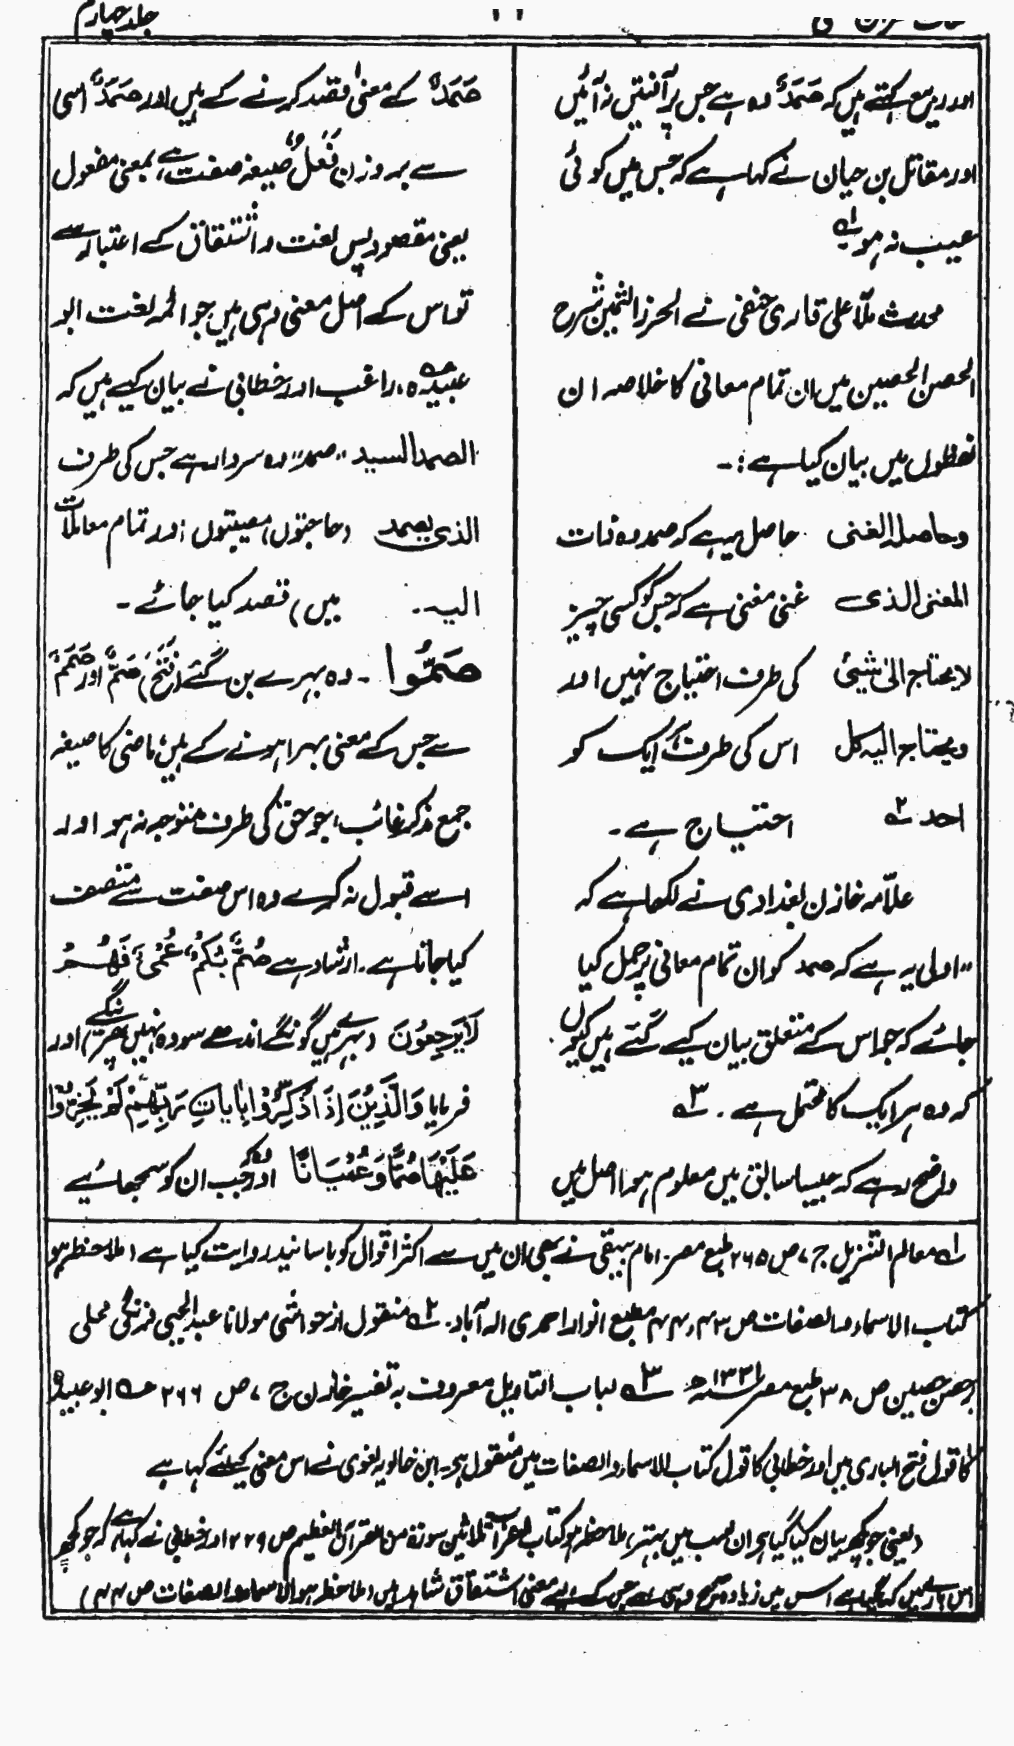 جلد چہارم
اور ربیع کہتے ہیں کہ صَمَدٌ وہ ہے جس پر آفتیں نہ آئیں
اور مقاتل بن حیان نے کہا ہے کہ جس میں کوئی
عیب نہ ہو لہ
محدث ملّا علی قاری حنفی نے الحرز الثمین شرح
الحصن الحصین میں ان تمام معانی کا خلاصہ ان
لفظوں میں بیان کیا ہے :-
وحاصلہ الغنی حاصل یہ ہے کہ صمد وہ ذات
المغنی الذی غنی مغنی ہے کہ جس کو کسی چیز
لا یحتاج الیٰ شیئی کی طرف احتیاج نہیں اور
ویحتاج الیہ کل اس کی طرف ہر ایک کو
احد ٢ہ احتیاج ہے ۔
علاّمہ خازن بغدادی نے لکھا ہے کہ
"اولی یہ ہے کہ صمد کو ان تمام معانی پر حمل کیا
جائے کہ جو اس کے متعلق بیان کیے گئے ہیں کیوں
کہ وہ ہر ایک کا محتمل ہے ۔ ٣ہ
واضح رہے کہ جیسا سابق میں معلوم ہوا اصل میں
صَمَدٌ کے معنیٰ قصد کرنے کے ہیں اور صَمَدٌ اسی
سے بر وزن فَعَلٌ صیغہ صفت ہے، بمعنی مفعول
یعنی مقصود پس لغت و اشتقاق کے اعتبار سے
تو اس کے اصل معنی وہی ہیں جو ائمہ لغت ابو
عبیدہ، راغب اور خطابی نے بیان کیے ہیں کہ
الصمد السید "صمد" وہ سردار ہے جس کی طرف
الذی یصمد (حاجتوں، مصیبتوں اور تمام معاملات
الیہ ۔ میں) قصد کیا جائے ۔
صَمُّوا ۔ وہ بہرے بن گئے (فَتَحَ) صَمٌّ اور صَمَمٌ
سے جس کے معنی بہرا ہونے کے ہیں، ماضی کا صیغہ
جمع مذکر غائب، جو حق کی طرف متوجہ نہ ہو اور
اسے قبول نہ کرے وہ اس صفت سے متصف
کیا جاتا ہے ۔ ارشاد ہے صُمٌّ بُكْمٌ عُمْیٌ فَهُمْ
لَا يَرْجِعُونَ (بہرے ہیں گونگے اندھے سو وہ نہیں پھریں گے) اور
فرمایا وَالَّذِيْنَ إِذَا ذُكِّرُوْا بِاٰيَاتِ رَبِّهِمْ لَمْ يَخِرُّوْا
عَلَيْهَا صُمًّا وَّعُمْيَانًا اور وہ کہ جب ان کو سمجھائیے
لہ معالم التنزیل ج ۷، ص ۲۶۵ طبع مصر۔ امام بیہقی نے بھی ان میں سے اکثر اقوال کو باسانید روایت کیا ہے (ملاحظہ ہو
کتاب الاسماء والصفات ص ۴۳، ۴۴ مطبع انوار احمدی الہ آباد۔ ٢ہ منقول از حواشی مولانا عبد الحیی فرنگی محلی
بر حصن حصین ص ۳۸ طبع مصر ۱۳۳۱ھ ٣ہ لباب التاویل معروف بہ تفسیر خازن ج ۷، ص ۲۶۶ ابو عبیدہ
کا قول فتح الباری میں اور خطابی کا قول کتاب الاسماء والصفات میں منقول ہے۔ ابن خالویہ لغوی نے اس معنی کیلئے کہا ہے
(یعنی جو کچھ بیان کیا گیا ہے ان سب میں بہتر، ملاحظہ ہو کتاب اعراب ثلاثین سورۃ من القرآن العظیم ص ۲۲۹ اور خطابی نے کہا ہے کہ جو کچھ
اس بارے میں کہا گیا ہے اس میں زیادہ صحیح وہی ہے جس کے لیے معنی اشتقاق شاہد ہیں (ملاحظہ ہو الاسماء والصفات ص ۴۴)